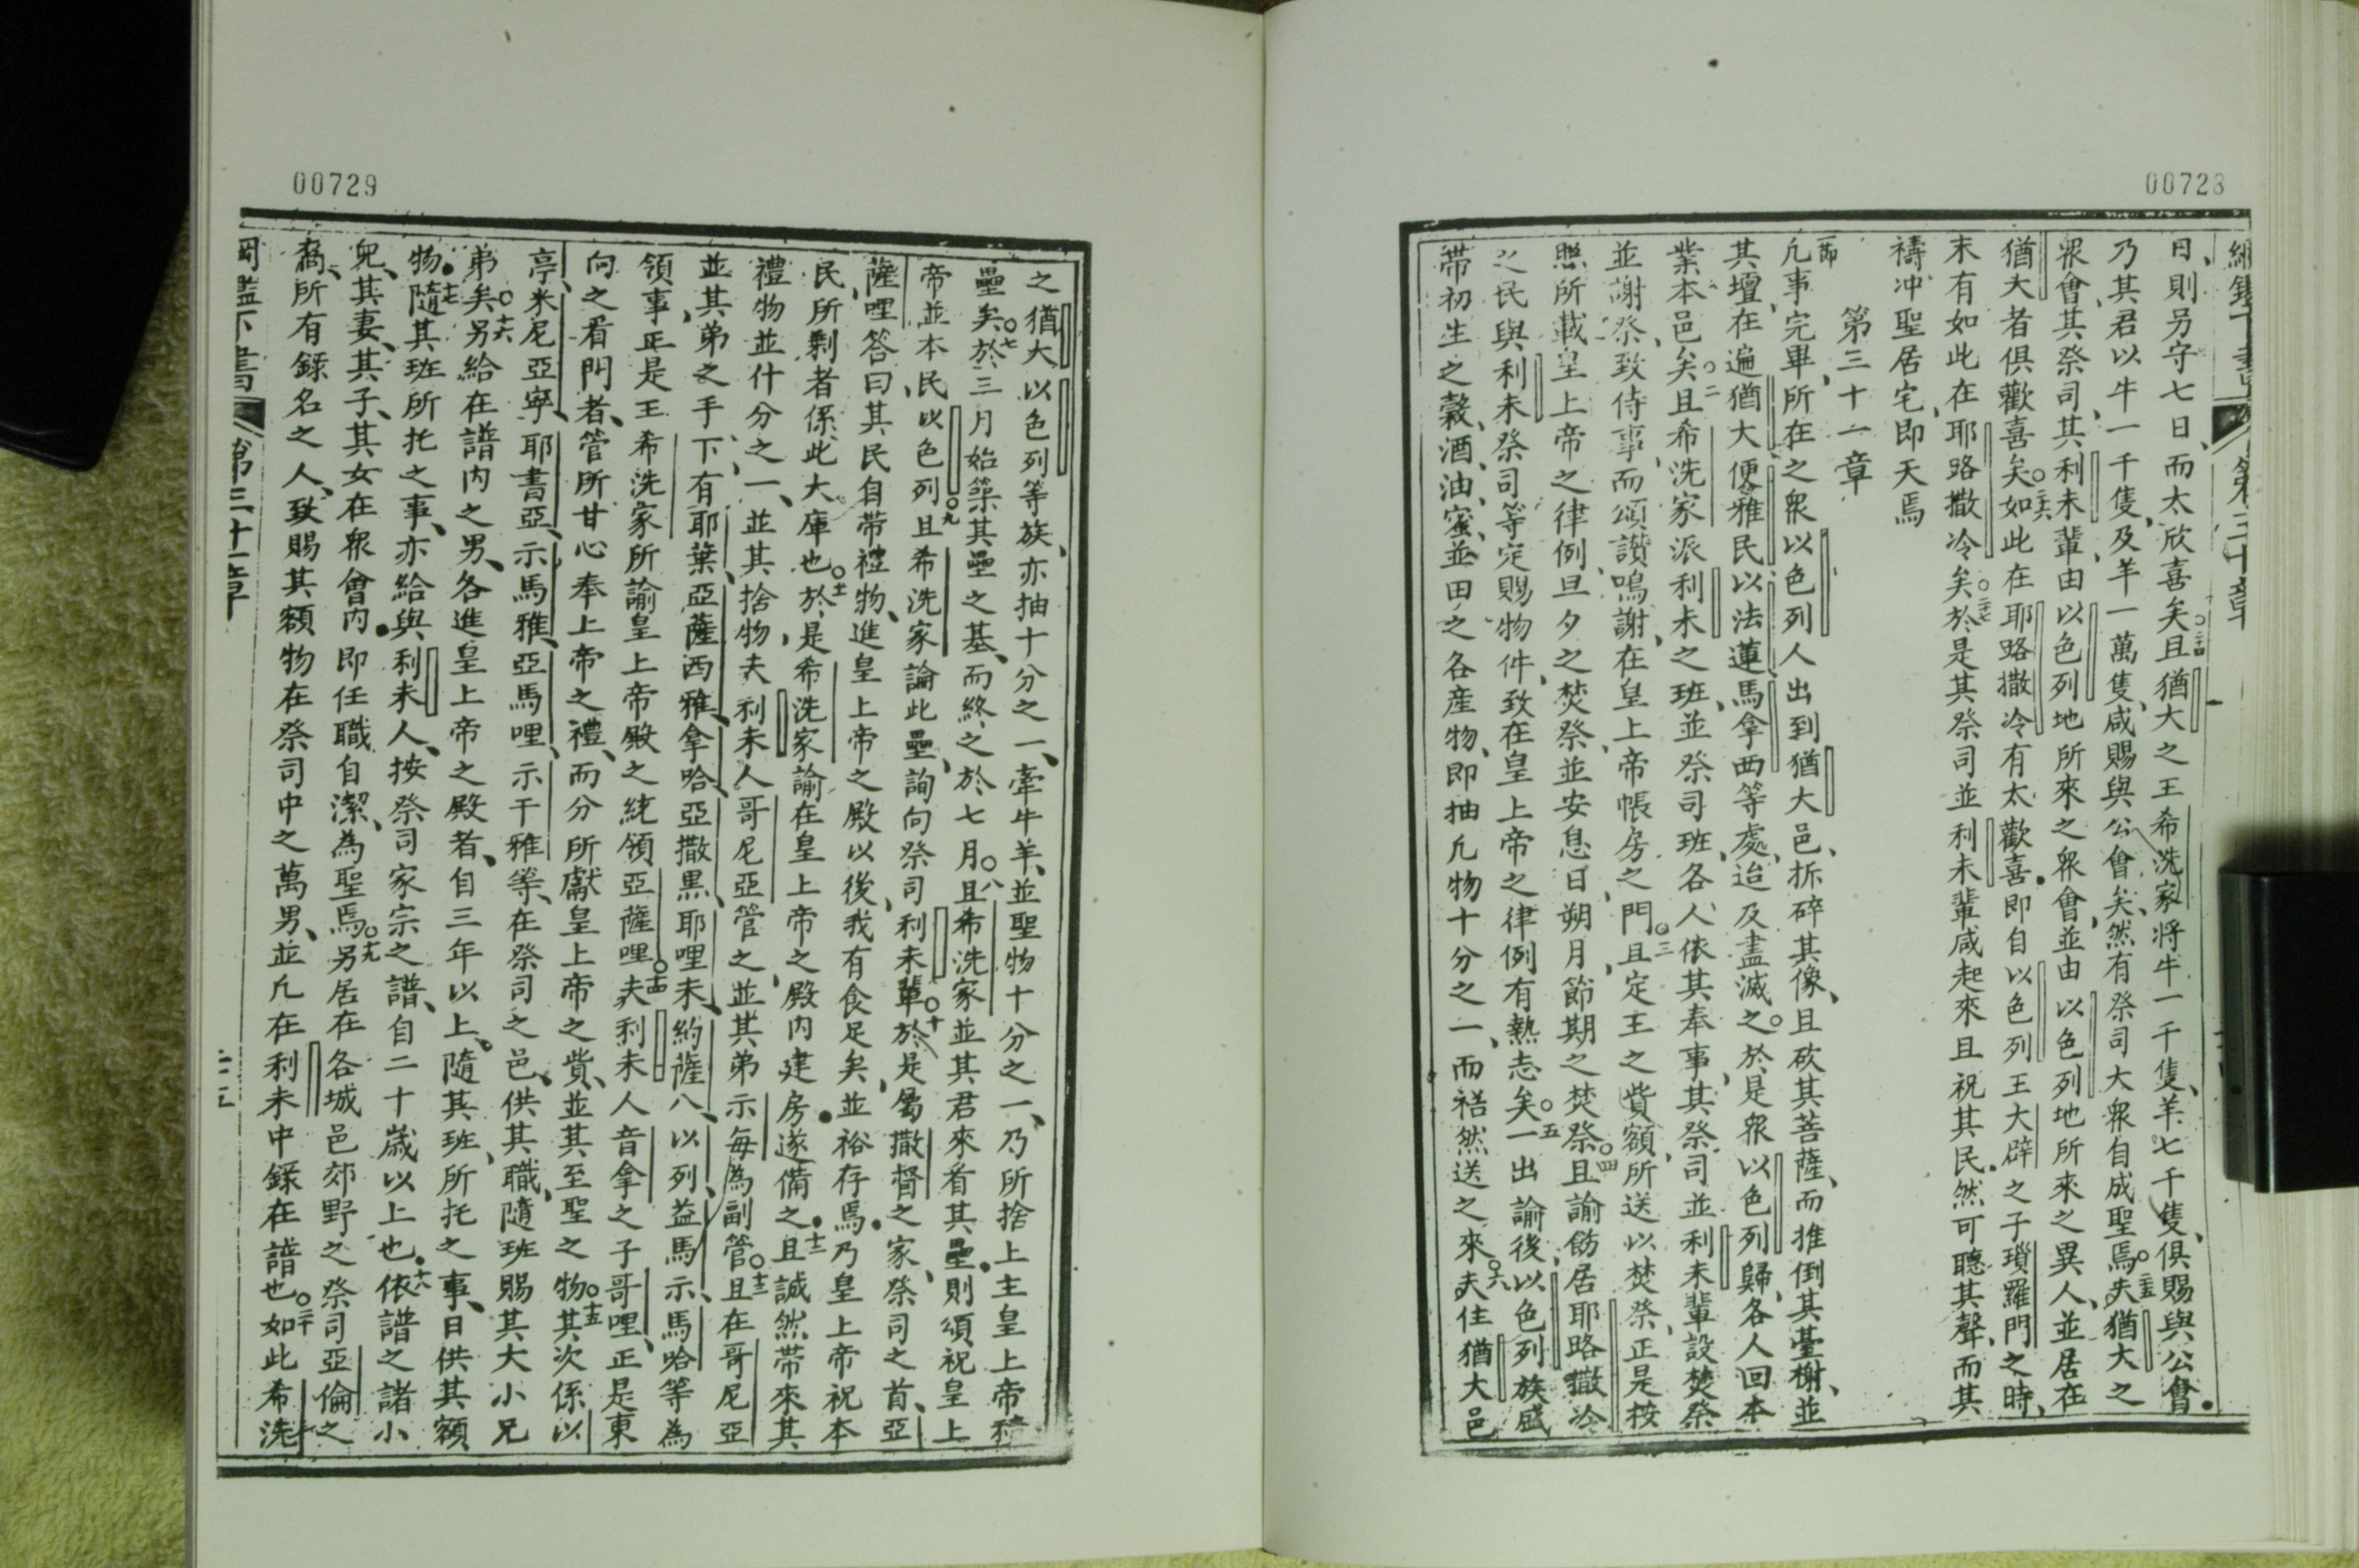 00728
綱鑑下書 第三十章
日、則另守七日、而太欣喜矣○二四且猶大之王希洗家將牛一千隻、羊七千隻、俱賜與公會。
乃其君以牛一千隻、及羊一萬隻、咸賜與公會矣、然有祭司大衆自成聖焉○二五夫猶大之
衆會、其祭司、其利未輩、由以色列地所來之衆會、並由以色列地所來之異人、並居在
猶大者俱歡喜矣○二六如此在耶路撒冷有太歡喜。即自以色列王大辟之子瑣羅門之時、
未有如此在耶路撒冷矣○二七於是其祭司並利未輩咸起來且祝其民。然可聽其聲、而其
禱冲聖居宅、即天焉
第三十一章
一節凢事完畢、所在之衆以色列人出到猶大邑、拆碎其像、且砍其菩薩、而推倒其臺榭、並
其壇、在遍猶大便雅民以法蓮馬拿西等處、迨及盡滅之○於是衆以色列歸、各人回本
業本邑矣○二且希洗家派利未之班、並祭司班、各人依其奉事、其祭司並利未輩設焚祭
並謝祭、致侍事、而頌讃鳴謝、在皇上帝帳房之門○三且定王之貲額、所送以焚祭、正是桉
照所載皇上帝之律例旦夕之焚祭、並安息日、朔月節期之焚祭○四且諭飭居耶路撒冷
之民與利未祭司等定賜物件、致在皇上帝之律例有熱志矣○五一出諭後、以色列族盛
帶初生之穀、酒、油、蜜、並田之各産物、即抽凢物十分之一、而𥙷然送之來○六夫住猶大邑
00729
之猶大以色列等族、亦抽十分之一、牽牛羊、並聖物十分之一、乃所捨上主皇上帝積
壘矣○七於三月始築其壘之基、而終之於七月○八且希洗家並其君來看其壘、則頌祝皇上
帝並本民以色列○九且希洗家論此壘、詢向祭司利未輩○十於是屬撒督之家、祭司之首、亞
薩哩答曰、其民自帶禮物、進皇上帝之殿以後、我有食足矣、並裕存焉。乃皇上帝祝本
民、所剩者係此大庫也○十一於是希洗家諭在皇上帝之殿內建房。遂備之。十二且誠然帶來其
禮物並什分之一、並其捨物、夫利未人哥尼亞管之、並其弟示每為副管○十三且在哥尼亞
並其弟之手下、有耶葉、亞薩西雅、拿哈、亞撒黒、耶哩未、約薩八、以列益馬、示馬哈等為
領事、正是王希洗家所諭皇上帝殿之統領亞薩哩○十四夫利未人音拿之子哥哩、正是東
向之看門者、管所甘心奉上帝之禮、而分所獻皇上帝之貲、並其至聖之物○十五其次係以
亭、米尼亞寧、耶書亞、示馬雅、亞馬哩、示干雅等、在祭司之邑、供其職、隨班賜其大小兄
弟矣○十六另給在譜內之男、各進皇上帝之殿者、自三年以上、隨其班、所托之事、日供其額
物。十七隨其班所托之事、亦給與利未人、按祭司家宗之譜、自二十歲以上也。十八依譜之諸小
兒、其妻、其子、其女在衆會內。即任職自潔、為聖焉○十九另居在各城邑郊野之祭司亞倫之
裔、所有錄名之人、致賜其額物在祭司中之萬男、並凢在利未中錄在譜也○二十如此希洗
綱鑑下書 第三十一章 二十五